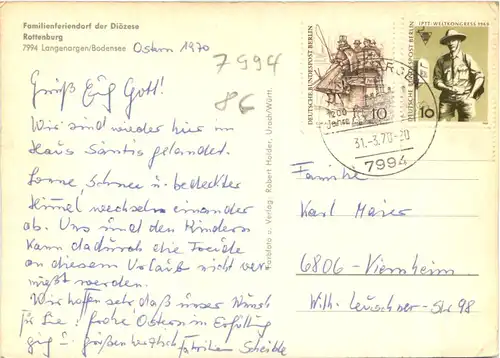 Familienferiendorf der Diözese
Rottenburg
7994 Langenargen/Bodensee
Ostern 1970
7994
86
Grüß Euch Gott!
Wir sind wieder hier im
Haus Säntis gelandet.
Sonne, Schnee u. bedeckter
Himmel wechseln einander
ab. Uns und den Kindern
kann dadurch die Freude
an diesem Urlaub nicht ver-
mießt werden.
Wir hoffen sehr, daß unser Wunsch
für Sie: frohe Ostern in Erfüllung
ging u. grüßen herzlich
Familien Scheible
Farbfoto u. Verlag: Robert Holder, Urach/Württ.
DEUTSCHE BUNDESPOST BERLIN
10
IPTT-WELTKONGRESS 1969
DEUTSCHE BUNDESPOST BERLIN
10
1200
Jahre
31.-3.70-20
7994
Familie
Karl Maier
6806-Viernheim
Wilh. Leuschner-Str 98